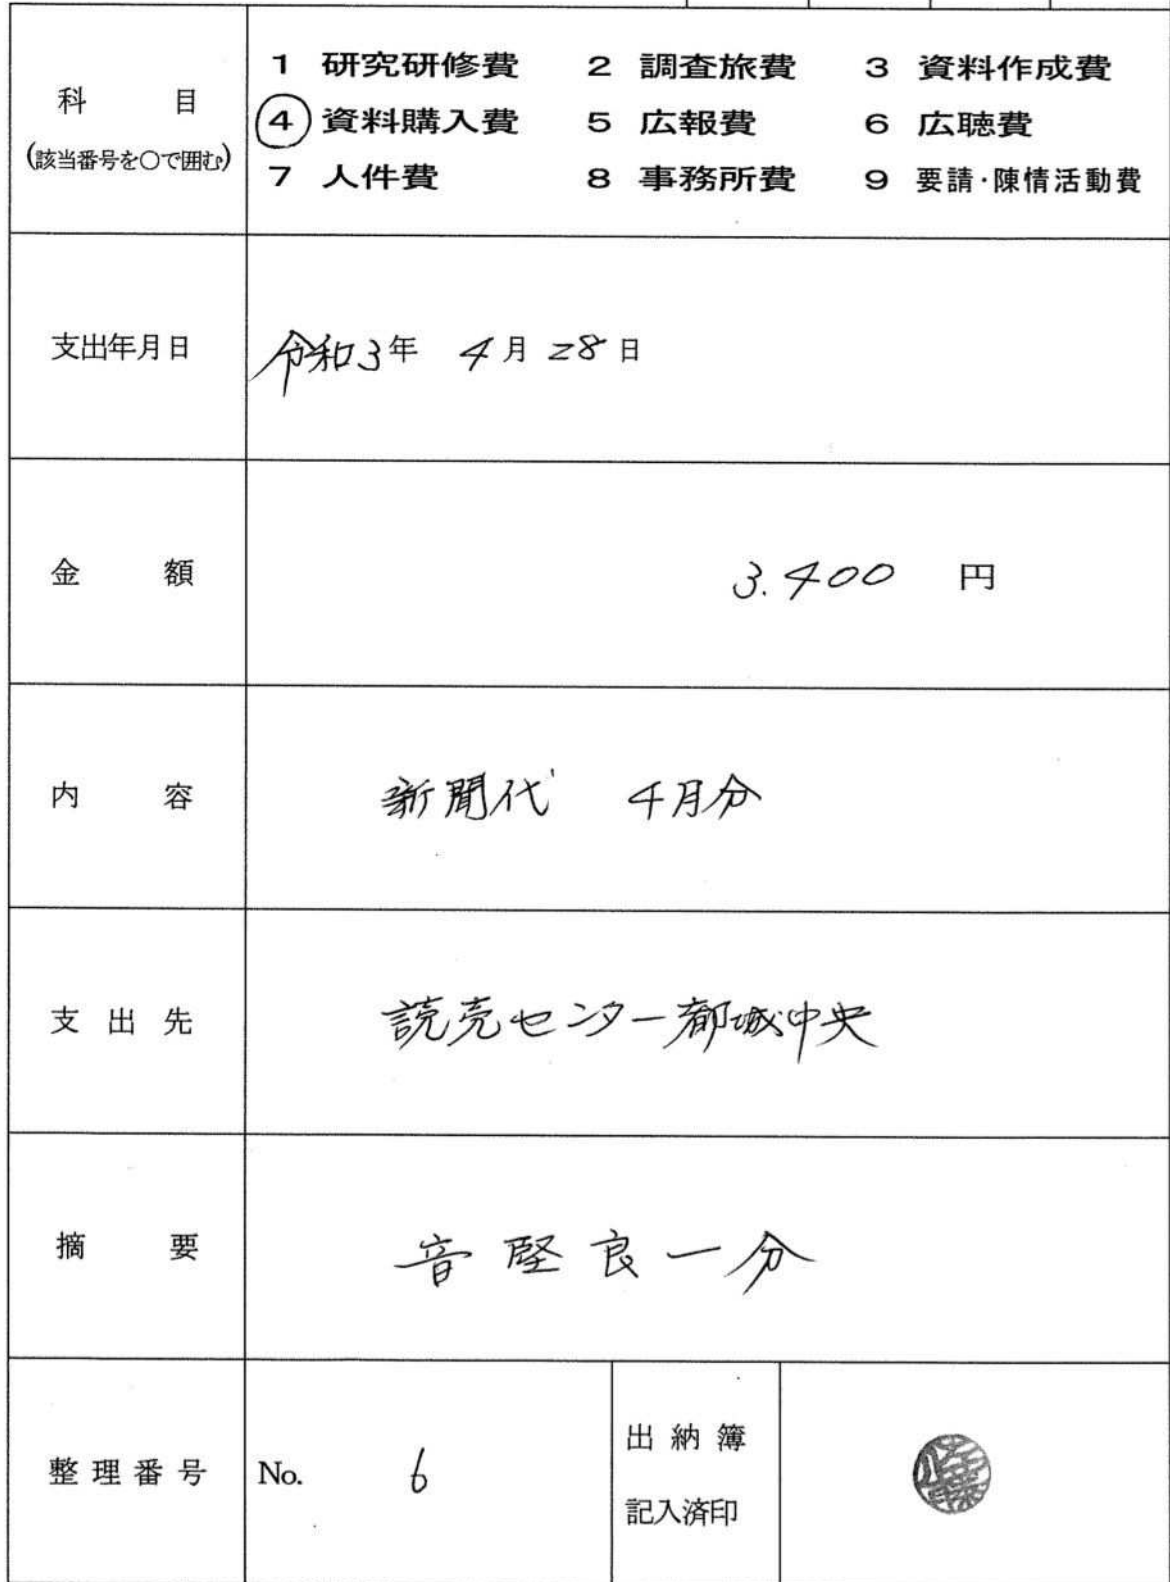 科 目
(該当番号を○で囲む)
1 研究研修費 2 調査旅費 3 資料作成費
4 資料購入費 5 広報費 6 広聴費
7 人件費 8 事務所費 9 要請・陳情活動費
支出年月日 令和3年 4月28日
金 額 3.400 円
内 容 新聞代 4月分
支出先 読売センター都城中央
摘 要 音堅良一分
整理番号 No. 6
出納簿
記入済印